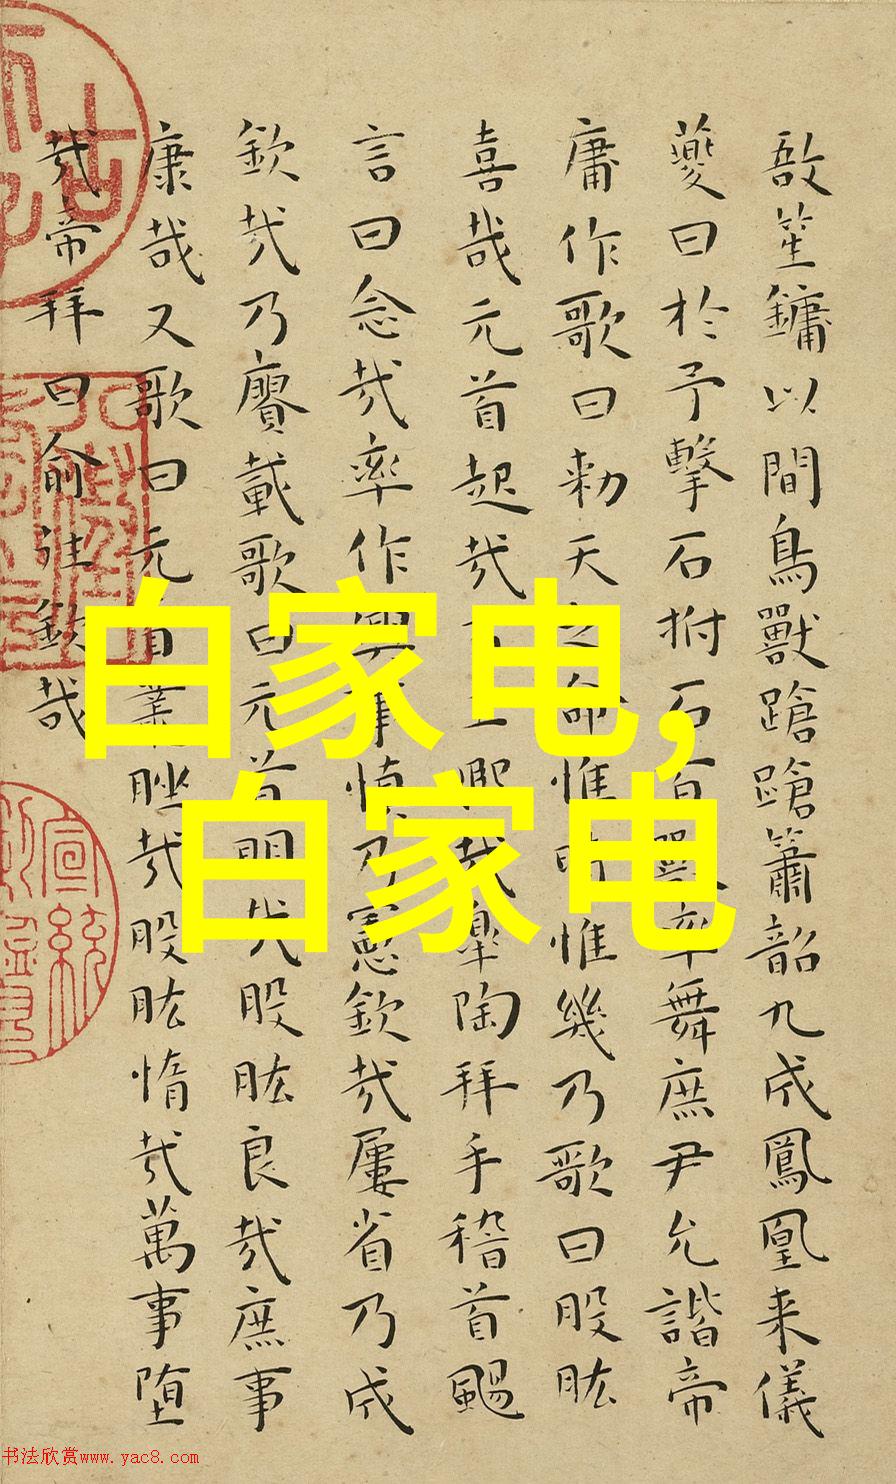 敔笙鏞以間鳥獸蹌蹌簫韶九成鳳凰来儀
夔曰於予擊石拊石百獸率舞庶尹允諧帝
庸作歌曰勑天之命惟時惟幾乃歌曰股肱
喜哉元首起哉百工熙哉皋陶拜手稽首颺
言曰念哉率作興事慎乃憲欽哉屢省乃成
欽哉乃賡載歌曰元首明哉股肱良哉庶事
康哉又歌曰元首叢脞哉股肱惰哉萬事堕
哉帝拜曰俞往欽哉
白家电，
白家电
宣統
书法欣赏www.yac8.com